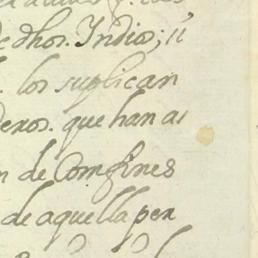 dhos. Indios; si
los suplican
deros. que han as
n de Confines
de aquella per